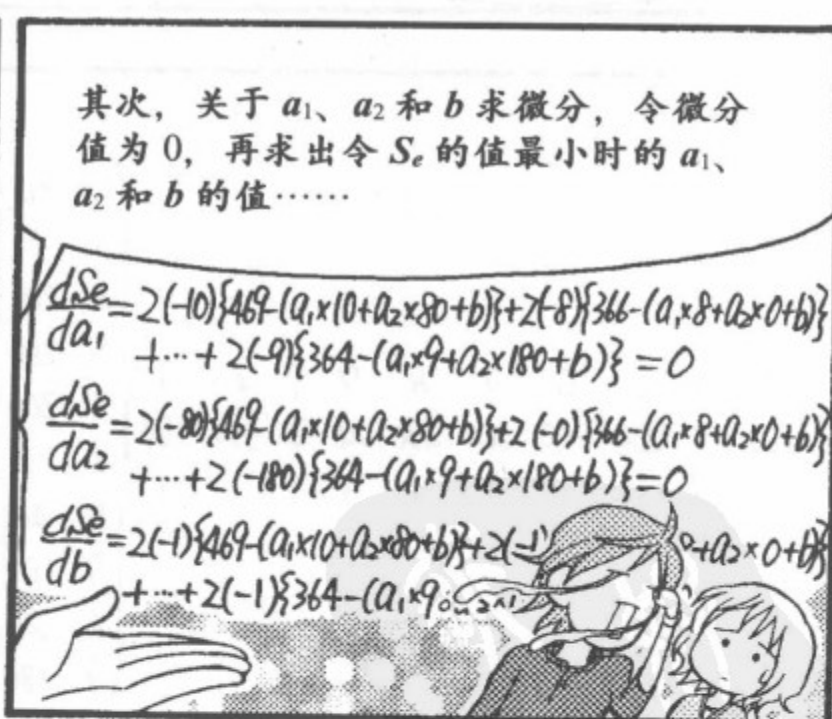 其次，关于 a₁、a₂ 和 b 求微分，令微分
值为 0，再求出令 Sₑ 的值最小时的 a₁、
a₂ 和 b 的值……
dSe/da₁=2(-10){469-(a₁×10+a₂×80+b)}+2(-8){366-(a₁×8+a₂×0+b)}
+…+2(-9){364-(a₁×9+a₂×180+b)}=0
dSe/da₂=2(-80){469-(a₁×10+a₂×80+b)}+2(-0){366-(a₁×8+a₂×0+b)}
+…+2(-180){364-(a₁×9+a₂×180+b)}=0
dSe/db=2(-1){469-(a₁×10+a₂×80+b)}+2(-1) +a₂×0+b)}
+…+2(-1){364-(a₁×9